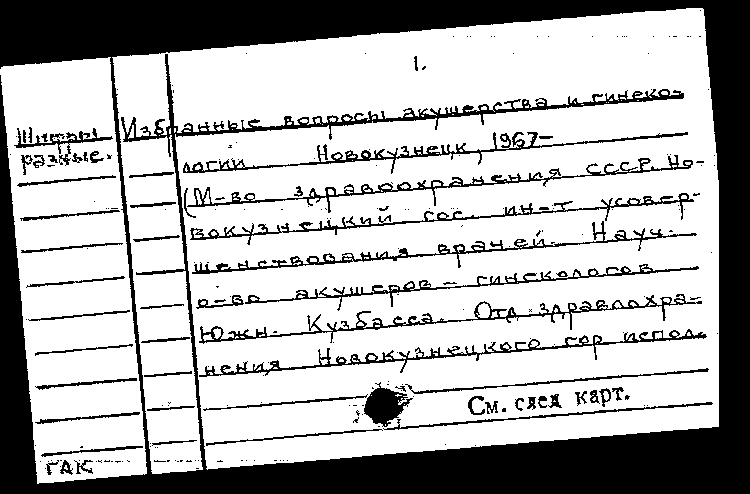 1.
Шифры разные.
Избранные вопросы акушерства и гинеко-
логии. Новокузнецк, 1967-
(М-во здравоохранения СССР. Но-
вокузнецкий гос. ин-т усовер-
шенствования врачей. Науч.
о-во акушеров - гинекологов
Южн. Кузбасса. Отд. здравоохра-
нения Новокузнецкого гор. испол.
См. след карт.
ГАК